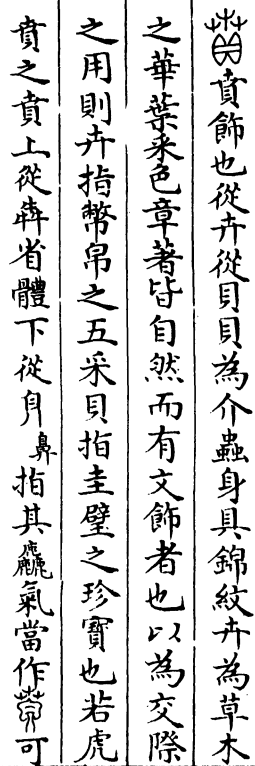 賁飾也從卉從貝貝為介蟲身具錦紋卉為草木
之華葉采色章著皆自然而有文飾者也以為交際
之用則卉指幣帛之五采貝指圭璧之珍寶也若虎
賁之賁上從犇省體下從自鼻指其麤氣當作可